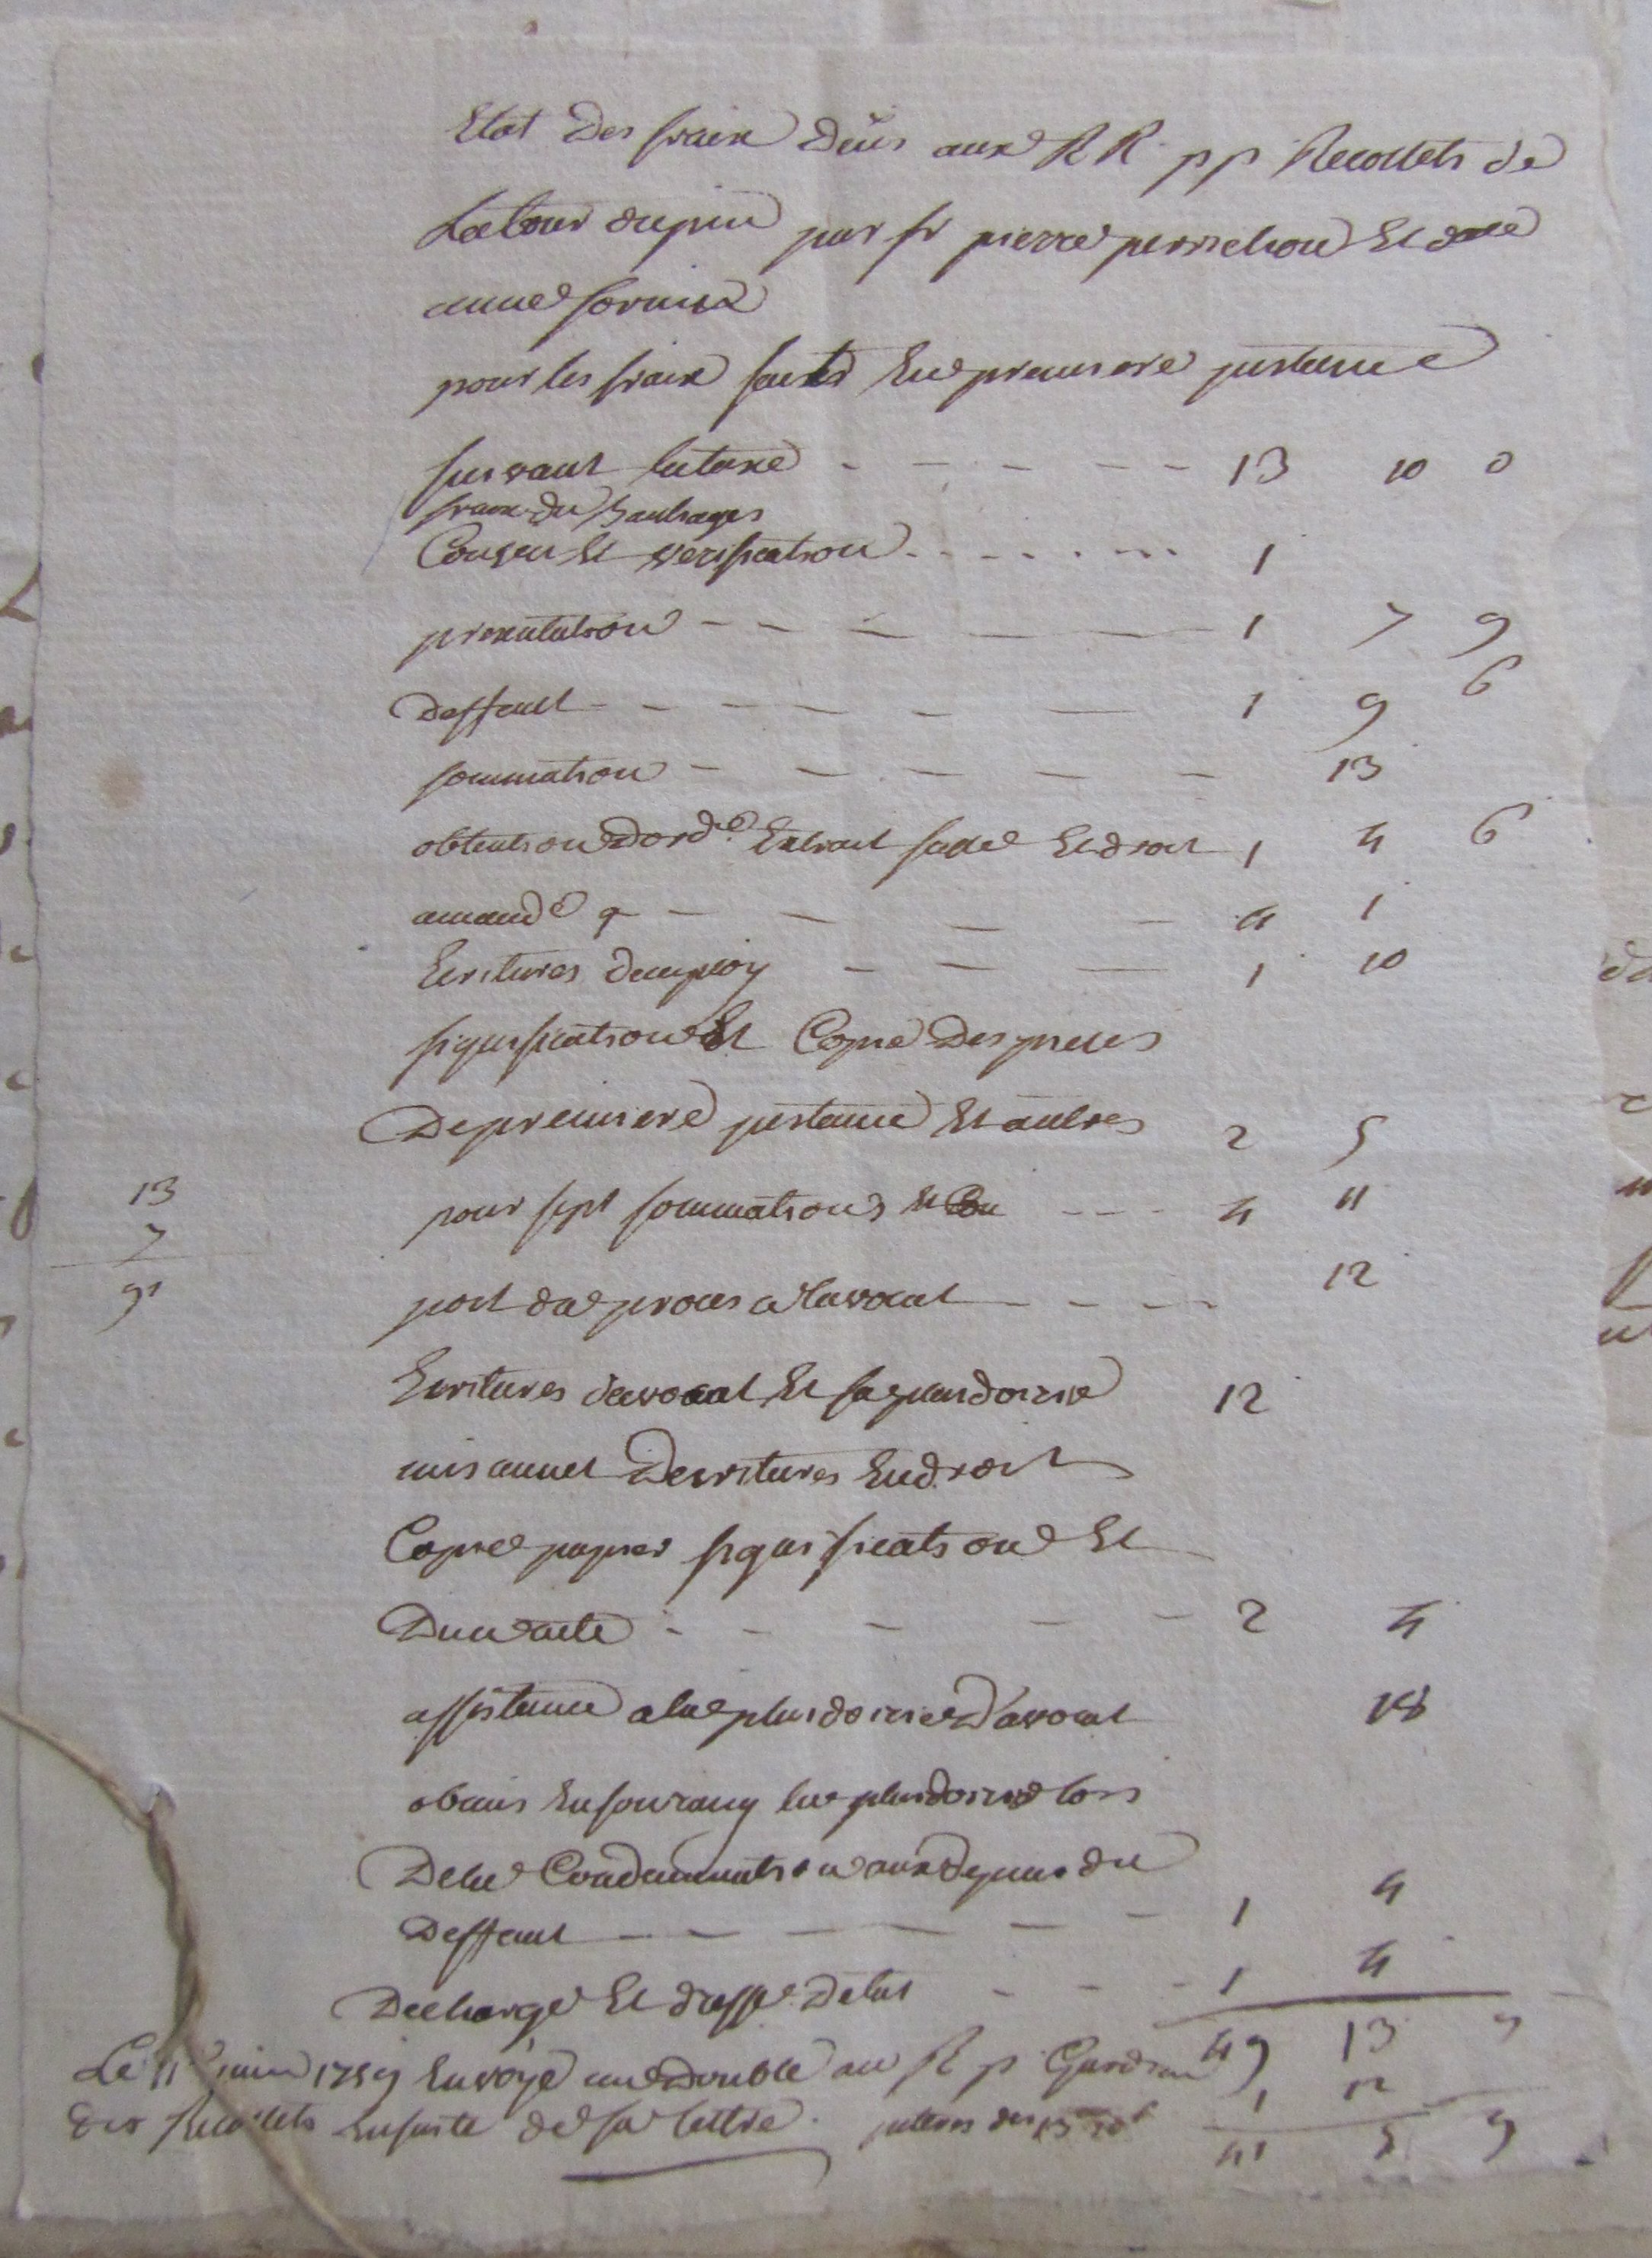 Etat Des fraix Deüs aux R R. pp Recollets de
Latour dupin par sr pierre perrichon Et dlle
anne
pour les fraix faits En premiere jnstance
suivant la taxe - - - - - 13 10 0
fraix du Bailiage
Conseu Et verification - - - - - 1
presentation - - - - - 1 7 9
Deffaut - - - - - 1 9 6
sommation - - - - - 13
obtention dordce Extrait sade Et droit 1 4 6
amande - - - - 4 1
Ecritures demploy - - - 1 10
signification Et Copie Des pieces
De premiere jnstance Et autres 2 5
13
pour sept sommations - - - 4 11
7
91
port de proces a Lavocat - - - 12
Ecritures davocat Et sa plaidoirie 12
mis au net Decritures En droit
Copie papier signification Et
Dun acte - - - - - 2 4
assistance a la plaidoirie D'avocat 18
obmis En son rang la plaidoirie lors
De la Condamnation aux depens du
Deffaut - - - - - 1 4
Decharge Et Detat - - - 1 4
49 13 9
Le 11e juin 1759 Envoyé un double au R p Gardien
1 12
des Recollets Ensuite de sa lettre. des 13
9